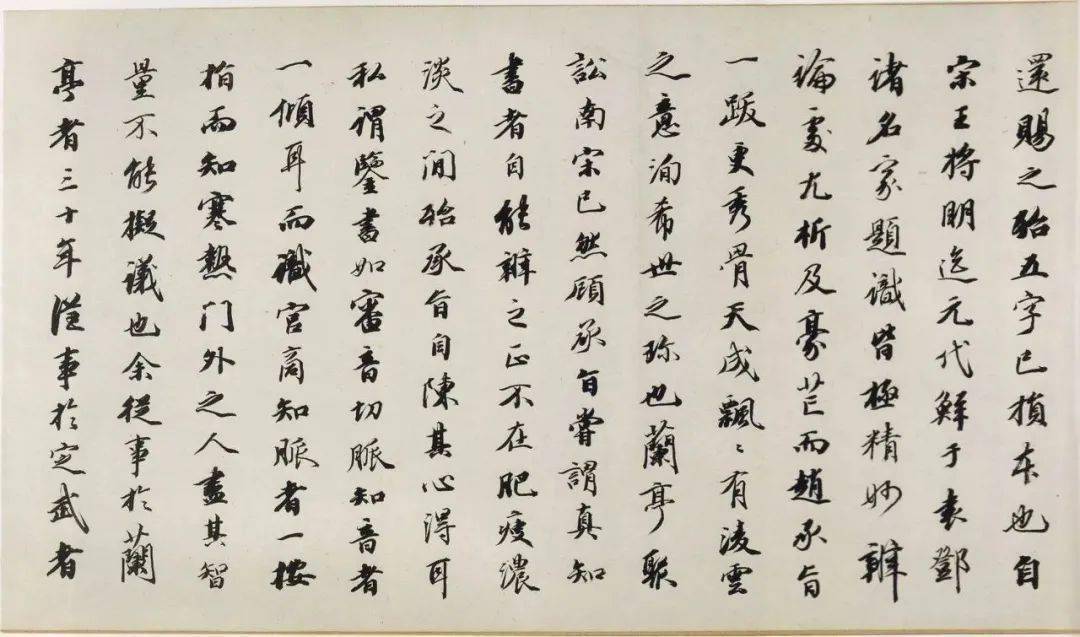 還賜之殆五字已損本也自
宋王將明迄元代鮮于袁鄧
諸名家題識皆極精妙辨
論處尤析及豪芒而趙承旨
一跋更秀骨天成飄〻有淩雲
之意洵希世之珍也蘭亭聚
訟南宋已然顧承旨嘗謂真知
書者自能辨之正不在肥瘦濃
淡之間殆承旨自陳其心得耳
私謂鑒書如審音切脈知音者
一傾耳而識宮商知脈者一按
指而知寒熱门外之人盡其智
量不能擬議也余從事於蘭
亭者三十年從事於定武者